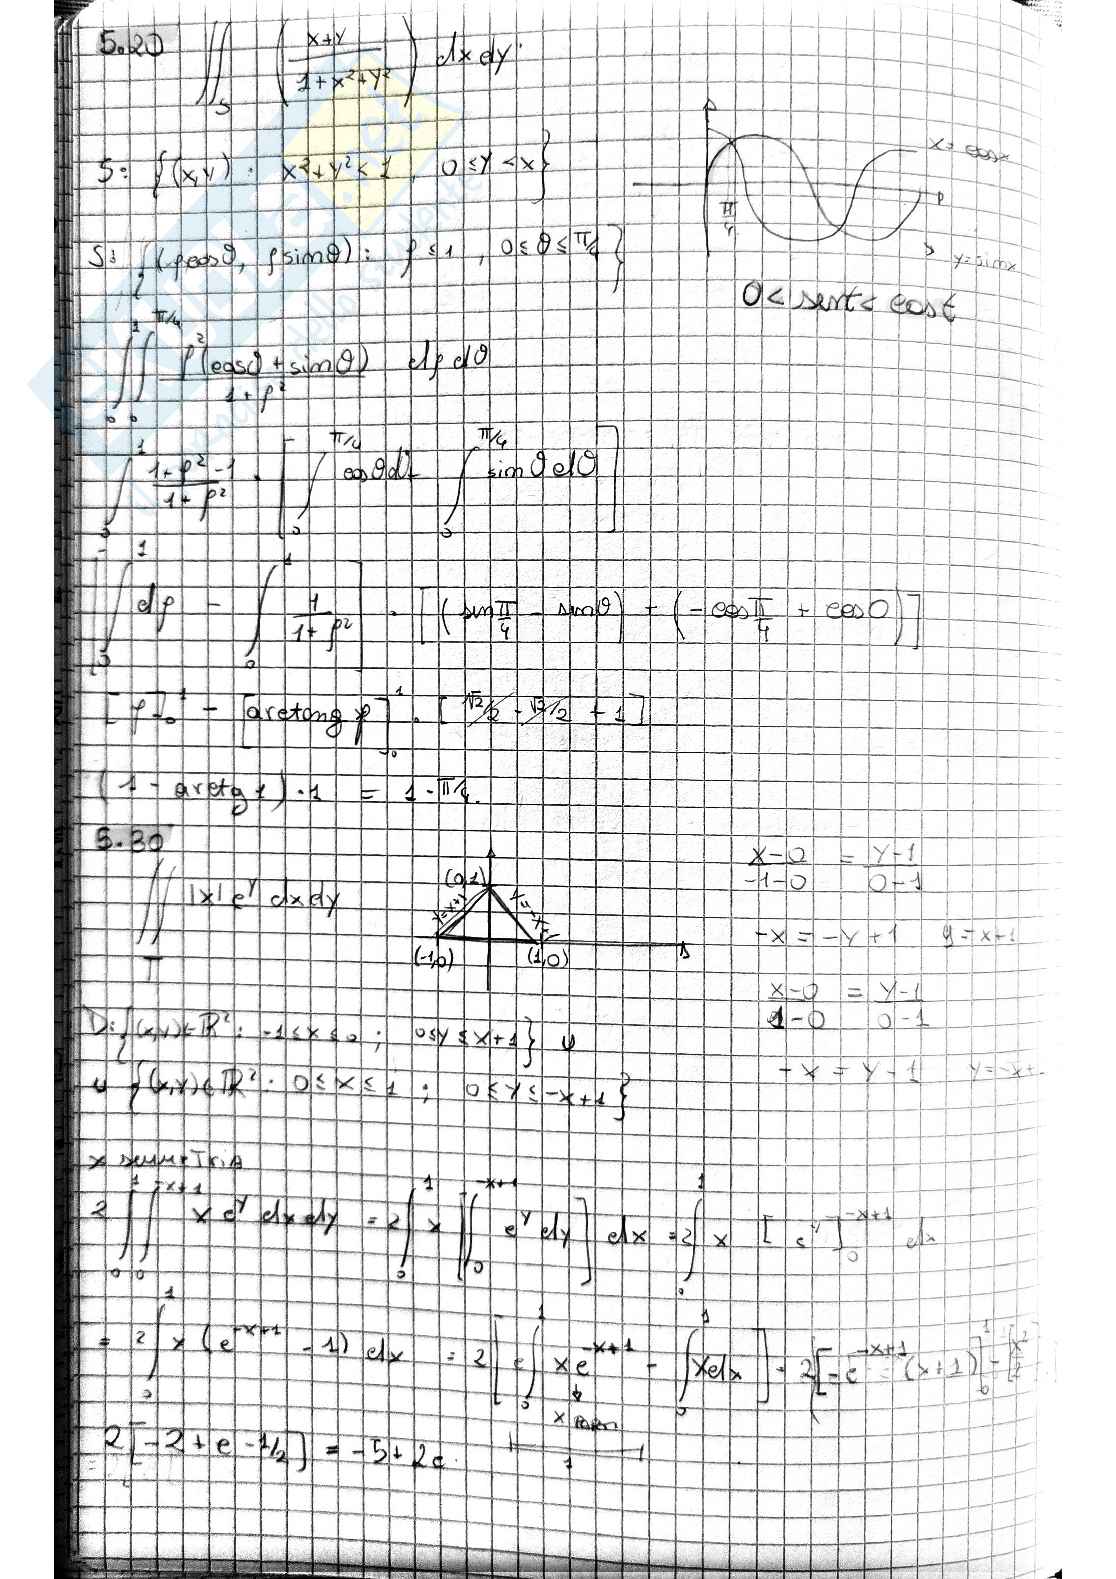 5.20 ∬_S ( (x+y)/(1+x²+y²) ) dx dy
S: {(x,y) : x²+y² < 1 , 0 ≤ y < x}
x = cosx
π/4
y = sinx
S: {(ρcosθ, ρsinθ) : ρ ≤ 1 , 0 ≤ θ ≤ π/4}
0 < sent < cost
∫₀¹ ∫₀^{π/4} ρ²(cosθ + sinθ)/(1+ρ²) dρ dθ
∫₀¹ (1+ρ²-1)/(1+ρ²) · [ ∫₀^{π/4} cosθ dθ ∫₀^{π/4} sinθ dθ ]
[ ∫₀¹ dρ - ∫₀¹ 1/(1+ρ²) ] · [ (sin π/4 - sin0) + (-cos π/4 + cos0) ]
[ρ]₀¹ - [arctang ρ]₀¹ · [ √2/2 - √2/2 + 1 ]
(1 - arctg 1) · 1 = 1 - π/4.
5.30
∬_T |x| e^y dx dy
(0,1)
y=x+1
(-1,0) (1,0)
(x-0)/(-1-0) = (y-1)/(0-1)
-x = -y+1 y = x+1
(x-0)/(1-0) = (y-1)/(0-1)
-x = y-1
D: {(x,y) ∈ ℝ² : -1 ≤ x ≤ 0 ; 0 ≤ y ≤ x+1} ∪
∪ {(x,y) ∈ ℝ² : 0 ≤ x ≤ 1 ; 0 ≤ y ≤ -x+1}
x simmetria
2 ∫₀¹ ∫₀^{-x+1} x e^y dx dy = 2 ∫₀¹ x [ ∫₀^{-x+1} e^y dy ] dx = 2 ∫₀¹ x [ e^y ]₀^{-x+1} dx
= 2 ∫₀¹ x (e^{-x+1} - 1) dx = 2 [ e ∫₀¹ x e^{-x+1} - ∫₀¹ x dx ] = 2 [ -e^{-x+1} (x+1) ]₀¹ - [ x²/2
x parti
1
2 [ -2 + e - 1/2 ] = -5 + 2e